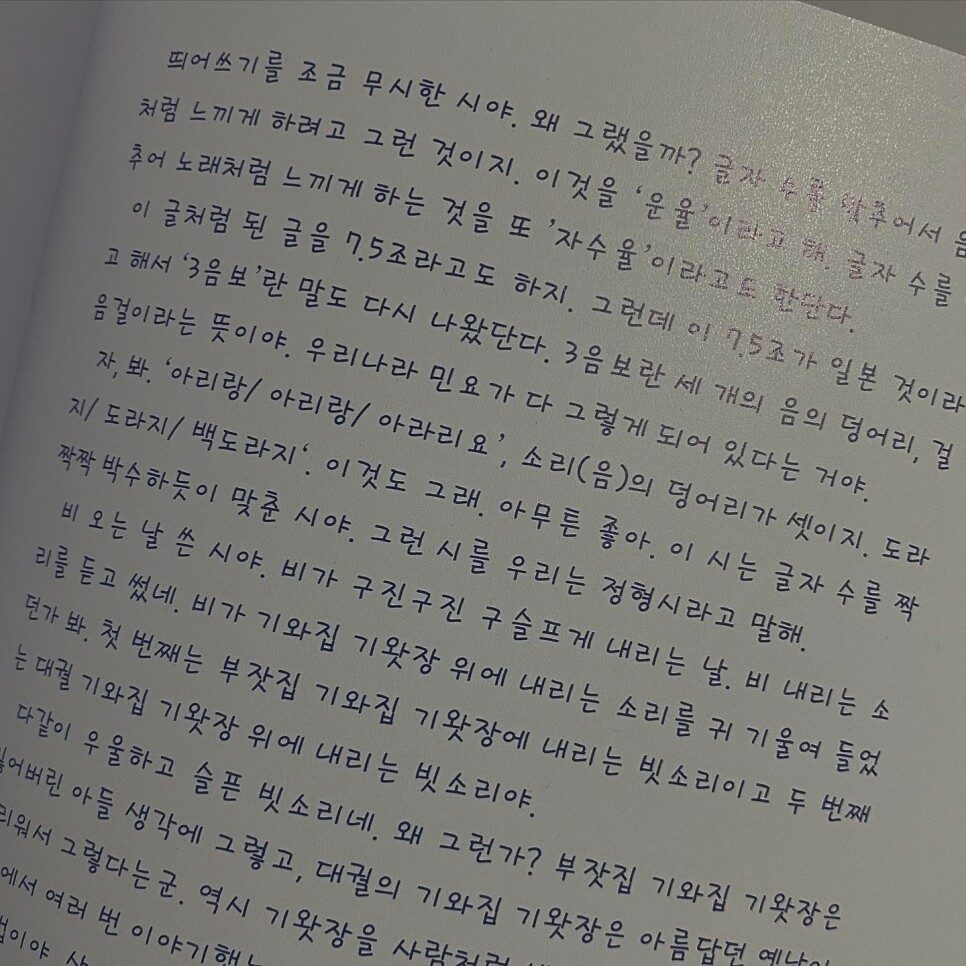 띄어쓰기를 조금 무시한 시야. 왜 그랬을까? 글자 수를 맞추어서 음
처럼 느끼게 하려고 그런 것이지. 이것을 ‘운율’이라고 해. 글자 수를
추어 노래처럼 느끼게 하는 것을 또 ’자수율’이라고도 한단다.
이 글처럼 된 글을 7.5조라고도 하지. 그런데 이 7.5조가 일본 것이라
고 해서 ‘3음보’란 말도 다시 나왔단다. 3음보란 세 개의 음의 덩어리, 걸
음걸이라는 뜻이야. 우리나라 민요가 다 그렇게 되어 있다는 거야.
자, 봐. ‘아리랑/ 아리랑/ 아라리요’, 소리(음)의 덩어리가 셋이지. 도라
지/ 도라지/ 백도라지‘. 이것도 그래. 아무튼 좋아. 이 시는 글자 수를 짝
짝짝 박수하듯이 맞춘 시야. 그런 시를 우리는 정형시라고 말해.
비 오는 날 쓴 시야. 비가 구진구진 구슬프게 내리는 날. 비 내리는 소
리를 듣고 썼네. 비가 기와집 기왓장 위에 내리는 소리를 귀 기울여 들었
던가 봐. 첫 번째는 부잣집 기와집 기왓장에 내리는 빗소리이고 두 번째
는 대궐 기와집 기왓장 위에 내리는 빗소리야.
다같이 우울하고 슬픈 빗소리네. 왜 그런가? 부잣집 기와집 기왓장은
잃어버린 아들 생각에 그렇고, 대궐의 기와집 기왓장은 아름답던 옛날이
리워서 그렇다는군. 역시 기왓장을 사람처럼
에서 여러 번 이야기했
법이야